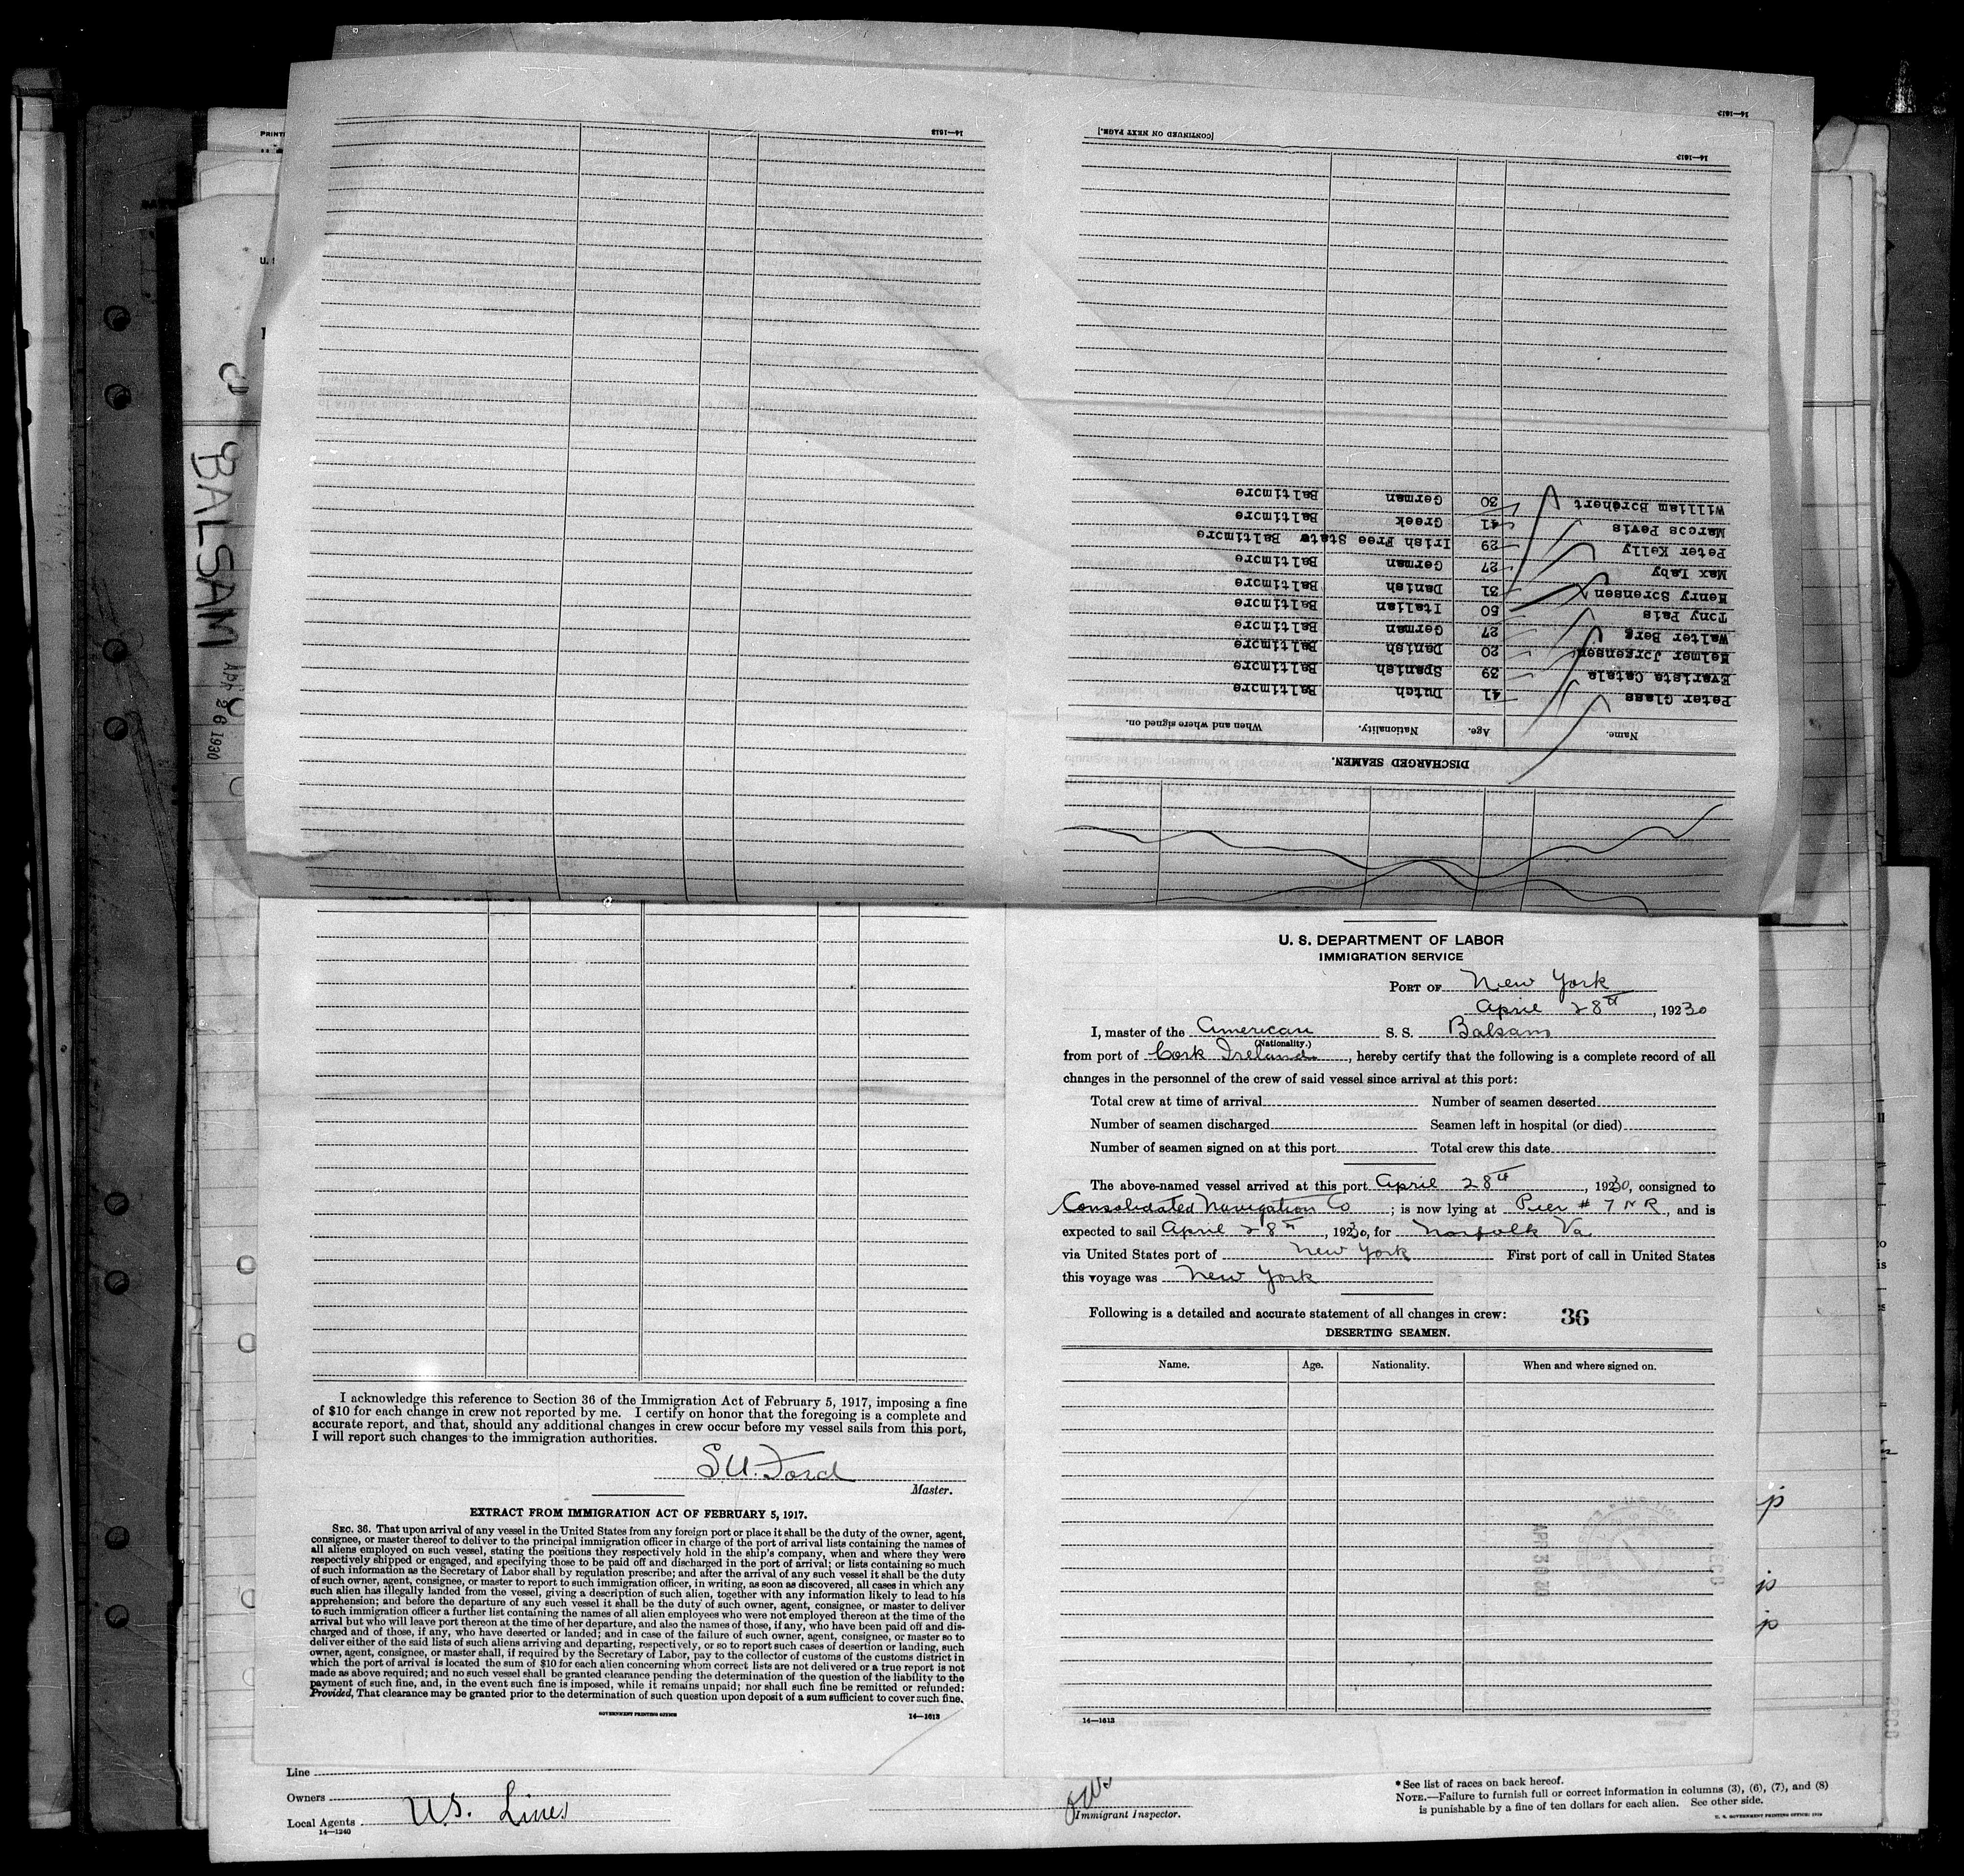 14—1613
[CONTINUED ON NEXT PAGE.]
14—1613
14—1613
BALSAM
APR 26 1930
DISCHARGED SEAMEN.
Name. Age. Nationality. When and where signed on.
Peter Glass 41 Dutch Baltimore
Evarista Catala 39 Spanish Baltimore
Helmer Jorgensen 20 Danish Baltimore
Walter Berg 27 German Baltimore
Tony Pais 50 Italian Baltimore
Henry Sorensen 31 Danish Baltimore
Max Laby 27 German Baltimore
Peter Kelly 29 Irish Free State Baltimore
Marcos Pevis 41 Greek Baltimore
William Borchert 30 German Baltimore
U. S. DEPARTMENT OF LABOR
IMMIGRATION SERVICE
PORT OF New York
April 28th, 1930
I, master of the American S. S. Balsam
(Nationality.)
from port of Cork Ireland, hereby certify that the following is a complete record of all
changes in the personnel of the crew of said vessel since arrival at this port:
Total crew at time of arrival Number of seamen deserted
Number of seamen discharged Seamen left in hospital (or died)
Number of seamen signed on at this port Total crew this date
The above-named vessel arrived at this port April 28th, 1930, consigned to
Consolidated Navigation Co; is now lying at Pier # 7 N R, and is
expected to sail April 28th, 1930, for Norfolk Va
via United States port of New York First port of call in United States
this voyage was New York
Following is a detailed and accurate statement of all changes in crew: 36
DESERTING SEAMEN.
Name. Age. Nationality. When and where signed on.
14—1613
I acknowledge this reference to Section 36 of the Immigration Act of February 5, 1917, imposing a fine
of $10 for each change in crew not reported by me. I certify on honor that the foregoing is a complete and
accurate report, and that, should any additional changes in crew occur before my vessel sails from this port,
I will report such changes to the immigration authorities.
S.U. Ford
Master.
EXTRACT FROM IMMIGRATION ACT OF FEBRUARY 5, 1917.
SEC. 36. That upon arrival of any vessel in the United States from any foreign port or place it shall be the duty of the owner, agent,
consignee, or master thereof to deliver to the principal immigration officer in charge of the port of arrival lists containing the names of
all aliens employed on such vessel, stating the positions they respectively hold in the ship's company, when and where they were
respectively shipped or engaged, and specifying those to be paid off and discharged in the port of arrival; or lists containing so much
of such information as the Secretary of Labor shall by regulation prescribe; and after the arrival of any such vessel it shall be the duty
of such owner, agent, consignee, or master to report to such immigration officer, in writing, as soon as discovered, all cases in which any
such alien has illegally landed from the vessel, giving a description of such alien, together with any information likely to lead to his
apprehension; and before the departure of any such vessel it shall be the duty of such owner, agent, consignee, or master to deliver
to such immigration officer a further list containing the names of all alien employees who were not employed thereon at the time of the
arrival but who will leave port thereon at the time of her departure, and also the names of those, if any, who have been paid off and dis-
charged and of those, if any, who have deserted or landed; and in case of the failure of such owner, agent, consignee, or master so to
deliver either of the said lists of such aliens arriving and departing, respectively, or so to report such cases of desertion or landing, such
owner, agent, consignee, or master shall, if required by the Secretary of Labor, pay to the collector of customs of the customs district in
which the port of arrival is located the sum of $10 for each alien concerning whom correct lists are not delivered or a true report is not
made as above required; and no such vessel shall be granted clearance pending the determination of the question of the liability to the
payment of such fine, and, in the event such fine is imposed, while it remains unpaid; nor shall such fine be remitted or refunded:
Provided, That clearance may be granted prior to the determination of such question upon deposit of a sum sufficient to cover such fine.
GOVERNMENT PRINTING OFFICE 14—1613
Line
Owners
Local Agents U.S. Lines
14—1240
Immigrant Inspector.
*See list of races on back hereof.
NOTE.—Failure to furnish full or correct information in columns (3), (6), (7), and (8)
is punishable by a fine of ten dollars for each alien. See other side.